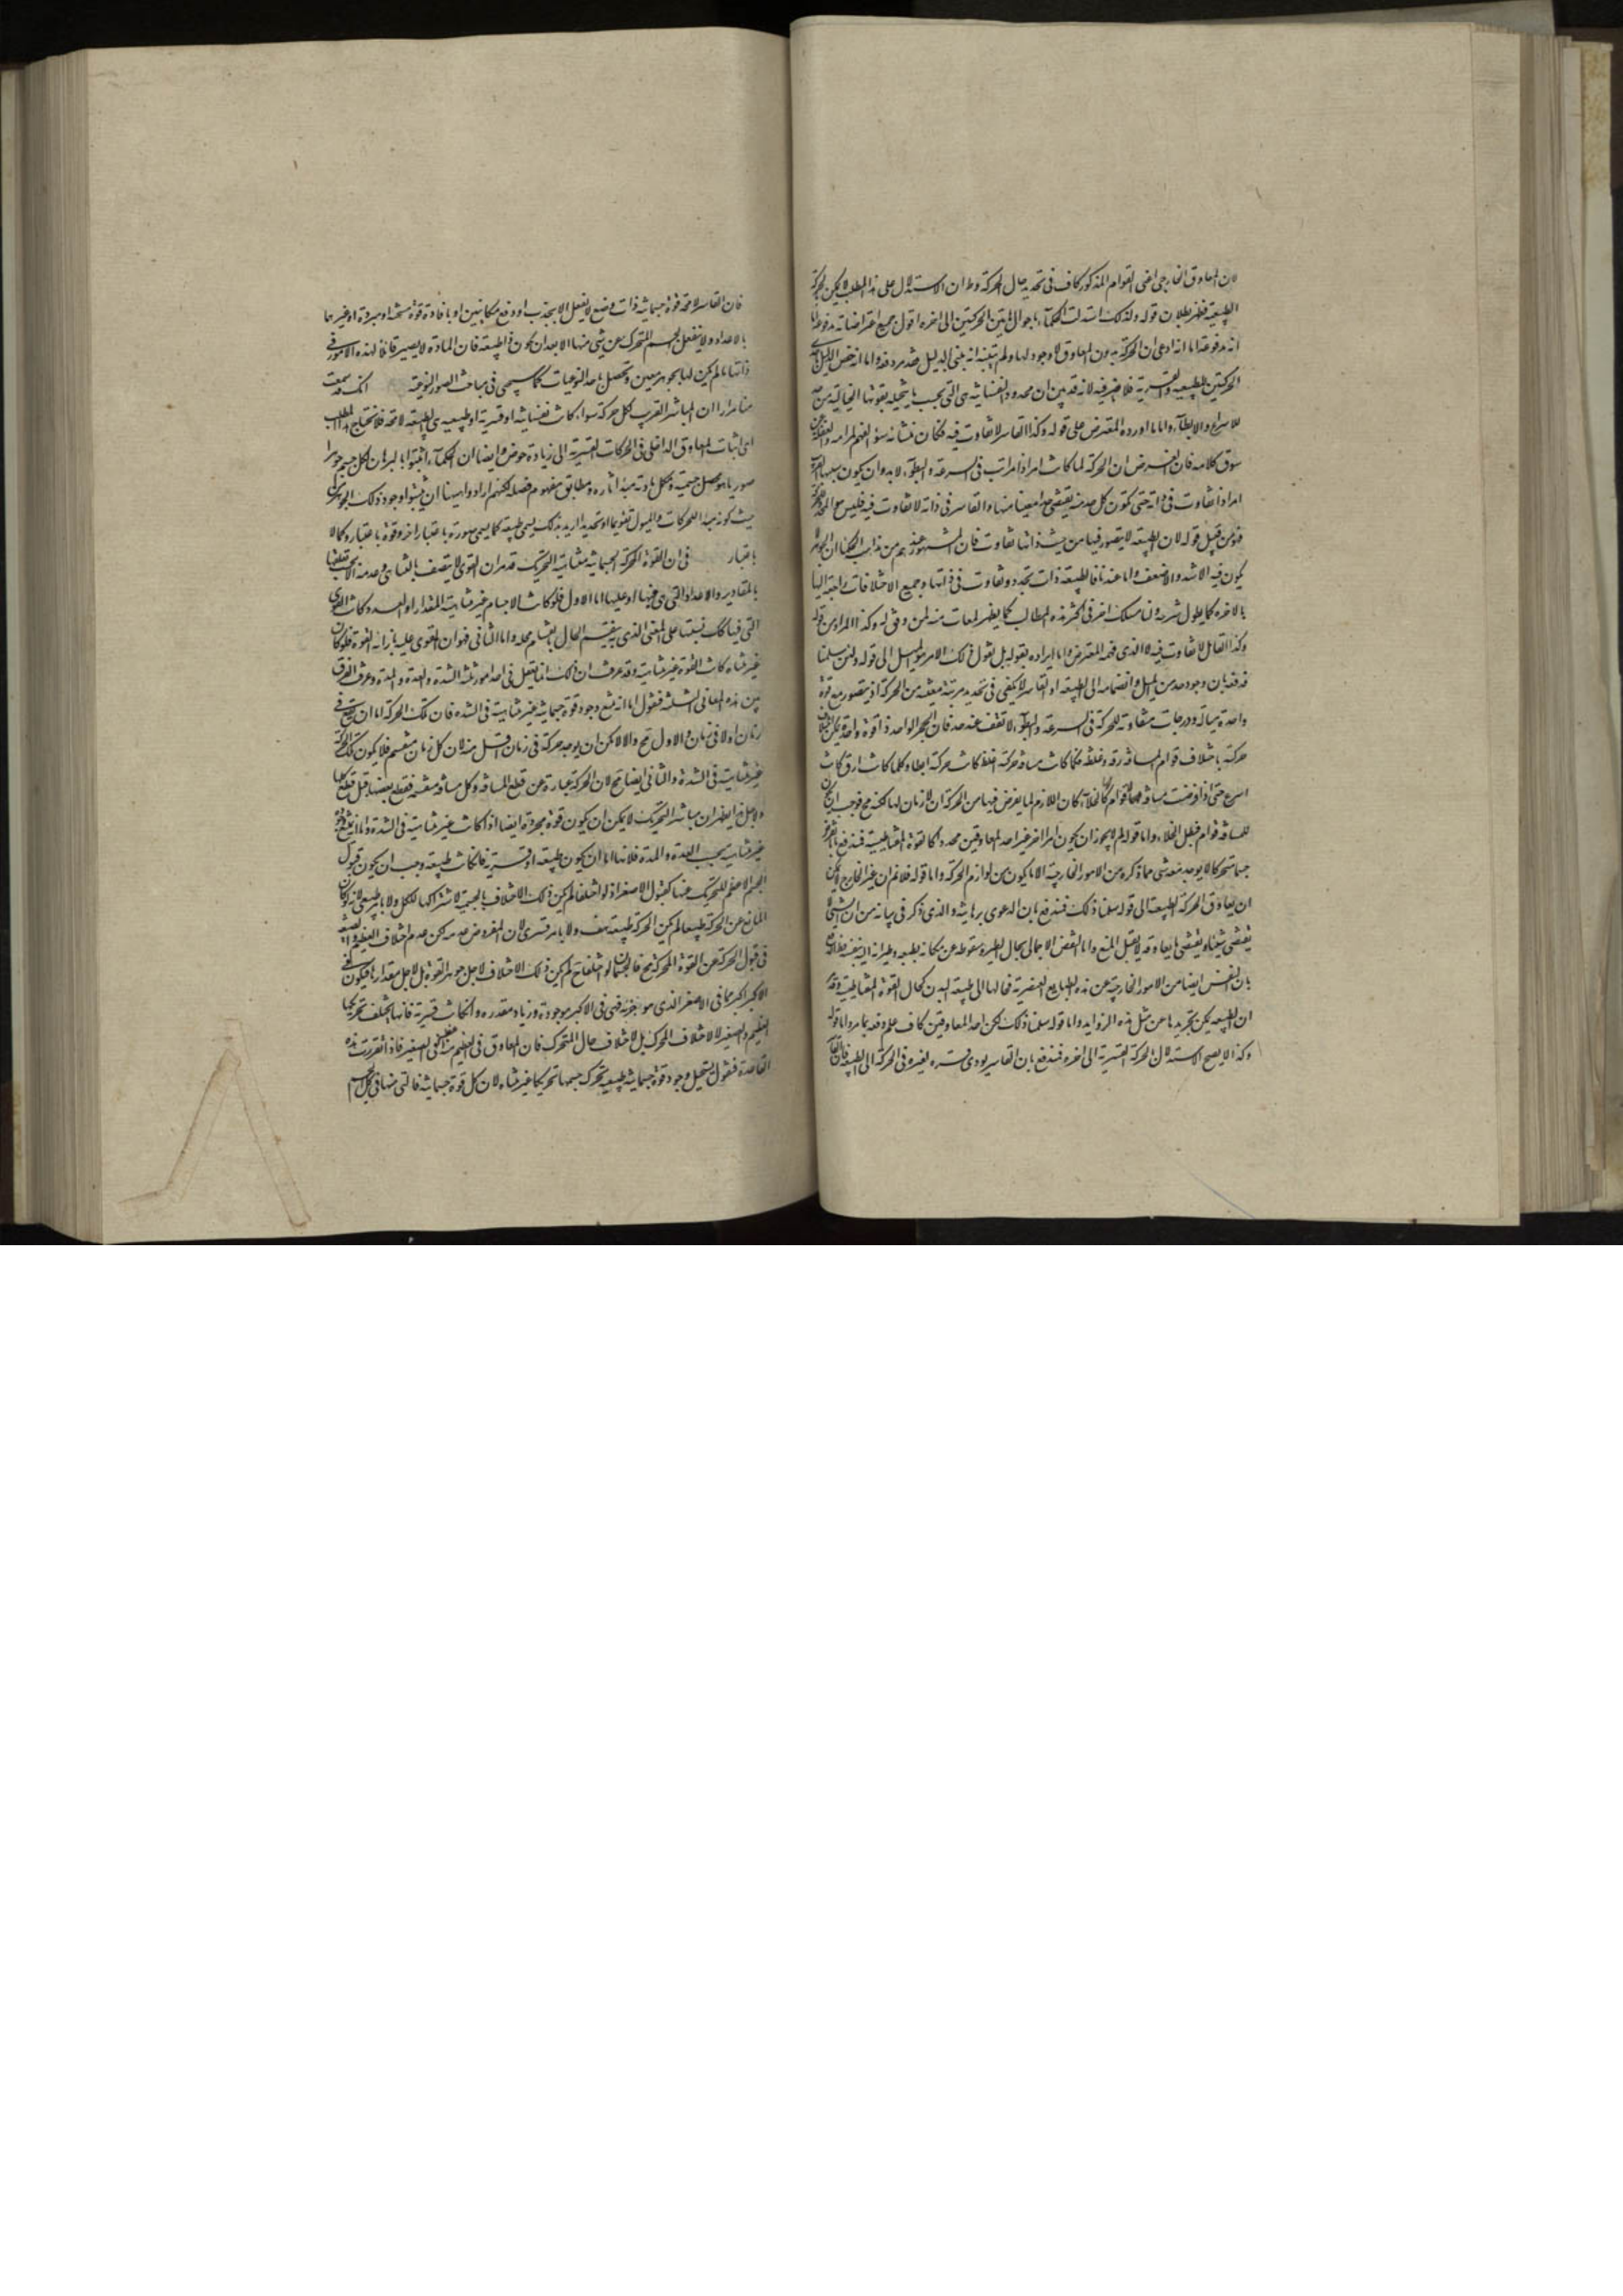 لان المعاوق الخارجى اعنى القوام المذكور كاف فى تحديد حال الحركة وط ان الاستدلال على هذا المطلب لا يمكن بالحركة
الطبيعية فظهر بطلان قوله ولذلك استدلت الحكماء باحوال هاتين الحركتين الى اخره اقول جميع اعتراضاته مدفوعة اما
انه مدفوعة اما انه ادعى ان الحركة بدون المعاوق لا وجود لها ولم يتبنه انه مبنى الدليل فقد مر دفعه واما انه خص الدليل
الحركتين الطبيعية والقسرية فلا ضير فيه لانه قد بين ان محدود النفسانية هى التى بحسب ما يتخيله بقوتها الخيالية من حد
للاسراع والابطاء واما ما اورده المعترض على قوله وكذا القاسر لا تفاوت فيه فكان منشأنه سؤ الفهم لمرامه والغفلة عن
سوق كلامه فان الغرض ان الحركة لما كانت امرا ذا مراتب فى السرعة والبطؤ لا بد وان يكون سببها
امرا ذا تفاوت فى ذاته حتى تكون كل حد منه يقتضى حدا معينا منها والقاسر فى ذاته لا تفاوت فيه فليس هو المحدد للحركة
فهو من قبيل قوله لان الطبيعة لا يتصور فيها من حيث ذاتها تفاوت فان المشهور عندهم من مذاهب الحكما ان الجوهر لا
يكون فيه الاشد والاضعف واما عندنا فالطبيعة ذات تجدد وتفاوت فى ذاتها وجميع الاختلافات راجعة اليها
بالاخره كما يطول شرحه ولنا مسلك اخر فى اكثر هذه المطالب كما يظهر لمعات منه لمن وفق له وكذا المراد من قوله
وكذا القابل لا تفاوت فيه لا الذى فهمه المعترض واما ايراده بقوله بل نقول ذلك الامر هو الميل الى قوله ولئن سلمنا
فدفعه بان وجود حد من الميل وانضمامه الى الطبيعة او القاسر لا يكفى فى تحديد مرتبة معينة من الحركة اذ يتصور مع قوة
واحدة ميالة ودرجات متفاوتة للحركة فى السرعة والبطؤ لا تقف عند حد فان الحجر الواحد ذا قوة واحدة يمكن اختلاف
حركته باختلاف قوام المسافة رقة وغلظة فكلما كانت مسافة حركته اغلظ كانت حركته ابطأ وكلما كانت ارق كانت
اسرع حتى اذا فرضت مسافة لا قوام لها كالخلاء كان اللازم لما يفرض فيها من الحركة ان لا زمان لها لكنه مح فوجب ان يكون
للمسافة قوام فبطل الخلاء واما قوله لم لا يجوز ان يكون امرا اخر غير احد المعاوقين محدد كالقوة المغناطيسية فمندفع بان
جسما متحركا لا يوجد معه شى مما ذكره من الامور الخارجية الا ما يكون من لوازم الحركة واما قوله فلا نم ان غير الخارج لا يمكن
ان يعاوق الحركة الطبيعية الى قوله سلمنا ذلك فمندفع بان الدعوى برهانية والذى ذكر فى بيانه من ان الشى لا
يقتضى شيئا ويقتضى ما يعاوقه لا يقبل المنع واما النقض الاجمالى بحال الطير وسقوطه عن مكانه بطبعه وطيرانه اليه بنفسه
بان النفس ايضا من الامور الخارجية عن هذه الطبايع العنصرية فحالها الى طبيعة البدن كحال القوة المغناطيسية وقد مر
ان الطبيعة يمكن تجريدها عن مثل هذه الزوايد واما قوله سلمنا ذلك لكن احد المعاوقين كاف علم دفعه بما مر واما قوله
وكذا لا يصح الاستدلال بالحركة القسرية الى اخره فمندفع بان القاسر يودى قسره لغيره فى الحركة الى الطبيعة
فان القاسر لا محة قوة جسمانية ذات وضع لا يفعل الا بجذب او دفع مكانيين او بافادة قوة مسخنة او مبردة او غيرهما
بالاعداد ولا ينفعل الجسم المتحرك عن شى منها الا بعد ان يكون ذا طبيعة فان المادة لا يصير قابلا لهذه الامور فى
ذاتها ما لم يكن لها تجوهر معين وتحصل باحد النوعيات كما سيجى فى مباحث الصور النوعية انك قد سمعت
منا مرارا ان المباشر القريب لكل حركة سواء كانت نفسانية او قسرية او طبيعية هى الطبيعة لا محة فلا نحتاج هذا المطلب
اى اثبات المعاوق الداخلى فى الحركات القسرية الى زيادة خوض وايضا ان الحكماء اثبتوا بالبرهان لكل جسم جوهرا
صوريا هو محصل جسمية ومكمل مادته مبدأ اثاره ومطابق مفهوم فصله لكنهم ارادوا هيهنا ان يثبتوا وجود ذلك الجوهر من
حيث كونه مبدأ للحركات والميول تقويما او تحديدا ليريد بذلك يسمى طبيعة كما يسمى صورة باعتبار اخر وقوة باعتبار وكمالا
باعتبار فى ان القوة المحركة الجسمانية متناهية التحريك قد مر ان القوى لا يتصف بالتناهى وعدمه الا بحسب تعلقها
بالمقادير والاعداد التى هى فيها او عليها اما الاول فلو كانت الاجسام غير متناهية المقدار او العدد وكانت القوى
التى فيها كك فبنسبتها على المعنى الذى به ينقسم الحال بانقسام محله واما الثانى فهو ان المقوى عليه بازاء القوة فلو كان
غير متناه كانت القوة غير متناهية وقد عرفت ان ذلك انما يعقل فى احد امور ثلثة الشدة والعدة والمدة وعرف الفرق
بين هذه المعانى الثلثة فنقول اما انه يمتنع وجود قوة جسمانية غير متناهية فى الشدة فان تلك الحركة اما ان يقع فى
زمان اولا فى زمان والاول مح والا لامكن ان يوجد حركة فى زمان اقل منه لان كل زمان منقسم فلا يكون تلك الحركة
غير متناهية فى الشدة والثانى ايضا مح لان الحركة عبارة عن قطع المسافة وكل مسافة منقسمة فقطع بعضها قبل قطع كلها
ولاجل هذا يظهر ان مباشر التحريك لا يمكن ان يكون قوة مجردة ايضا اذا كانت غير متناهية فى الشدة واما امتناع قوة
غير متناهية بحسب العدة والمدة فلانها اما ان يكون طبيعية او قسرية فان كانت طبيعية وجب ان يكون قبول
الجسم الاعظم للتحريك عنها كقبول الاصغر اذ لو اختلفا لم يكن ذلك الاختلاف بالجسمية لاشتراكها للكل ولا بامر طبيعى لانه لو كان
المانع عن الحركة طبيعيا لم يكن الحركة طبيعية هف ولا بامر قسرى لان المفروض عدمه لكن عدم اختلاف العظيم والصغير
فى قبول الحركة عن القوة المحركة مح فالجسمان لو اختلفا مح لم يكن ذلك الاختلاف لاجل جوهر القوة بل لاجل مقدارها فيكون فى
الاكبر اكبر مما فى الاصغر الذى هو جزئه فهى فى الاكبر موجودة وزياد مقدره وان كانت قسرية فانها يختلف تحريكها
العظيم والصغير لا لاختلاف المحرك بل لاختلاف حال المتحرك فان المعاوق فى العظيم اعظم منه فى الصغير فاذا تقررت هذه
القاعدة فنقول يستحيل وجود قوة جسمانية طبيعية تحرك جسمها تحريكا غير متناه لان كل قوة جسمانية فالتى منها فى كل الجسم